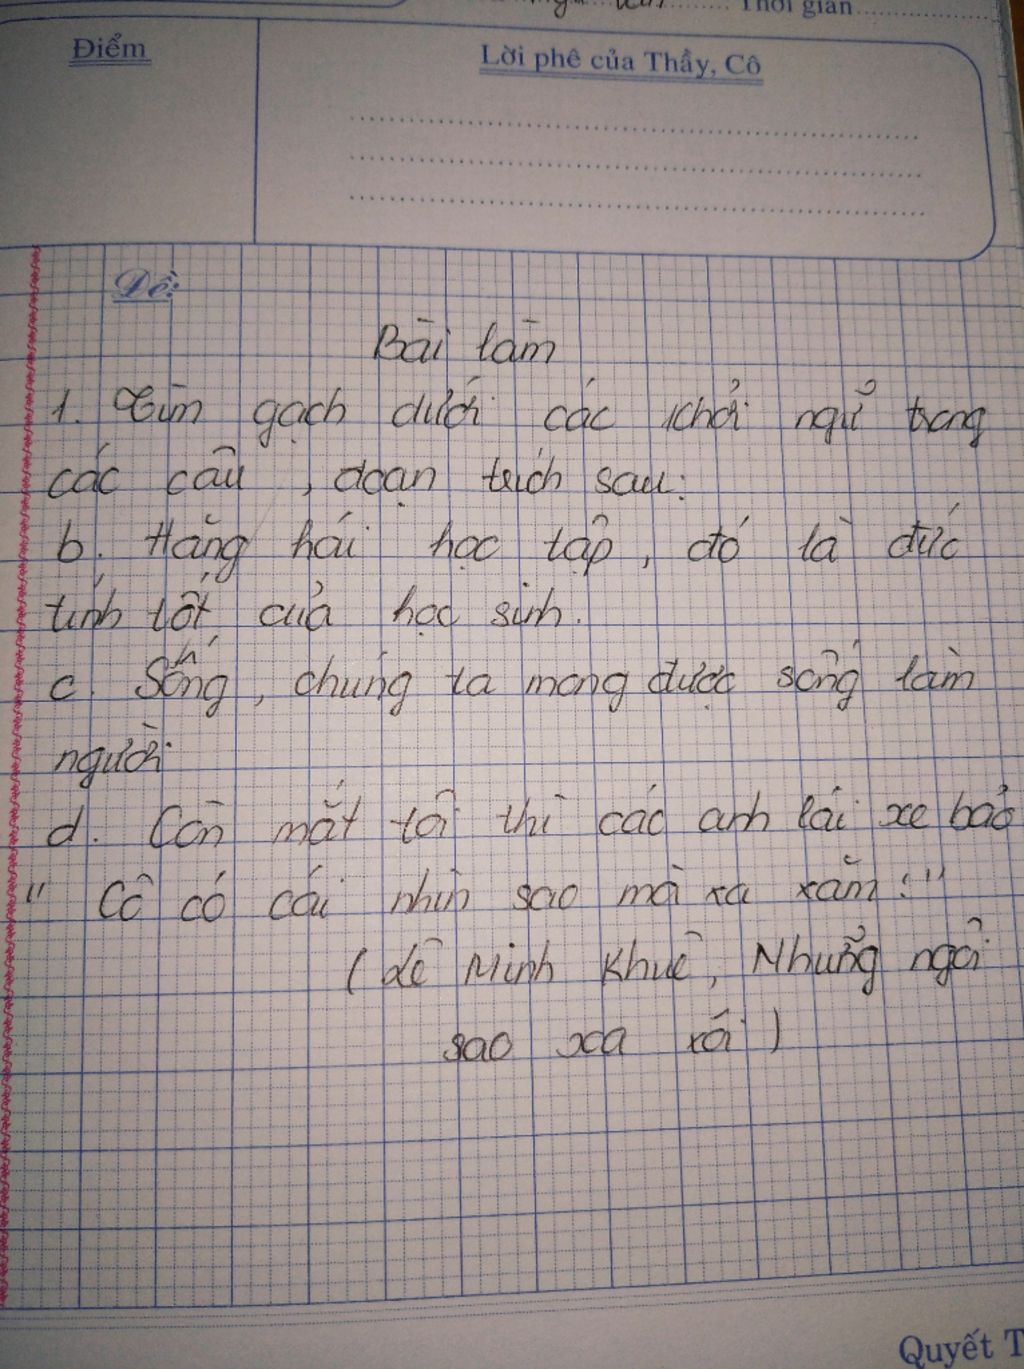 Thời gian
Điểm
Lời phê của Thầy, Cô
Đề:
Bài làm
1. Tìm gạch dưới các khởi ngữ trong
các câu, đoạn trích sau:
b. Hăng hái học tập, đó là đức
tính tốt của học sinh.
c. Sống, chúng ta mong được sống làm
người
d. Còn mắt tôi thì các anh lái xe bảo
" Cô có cái nhìn sao mà xa xăm!"
(Lê Minh Khuê, Những ngôi
sao xa xôi)
Quyết T